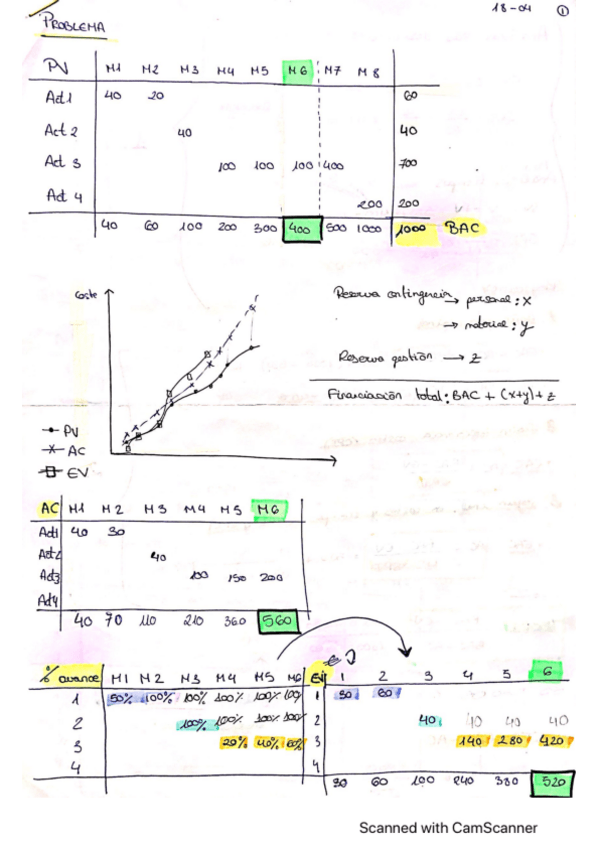 18-04 1
PROBLEMA
PV M1 M2 M3 M4 M5 M6 M7 M8
Act1 40 20 60
Act 2 40 40
Act 3 100 100 100 400 700
Act 4 200 200
40 60 100 200 300 400 500 1000 1000 BAC
Coste
Reserva contingencia → personal: x
→ material: y
Reserva gestión → z
Financiación total: BAC + (x+y) + z
PV
AC
EV
AC M1 M2 M3 M4 M5 M6
Act1 40 30
Act2 40
Act3 100 150 200
Act4
40 70 110 210 360 560
% avance M1 M2 M3 M4 M5 M6 EV 1 2 3 4 5 6
1 50% 100% 100% 100% 100% 100% 1 30 60
2 100% 100% 100% 100% 2 40 40 40 40
3 20% 40% 60% 3 140 280 420
4 4
30 60 100 240 380 520
Scanned with CamScanner